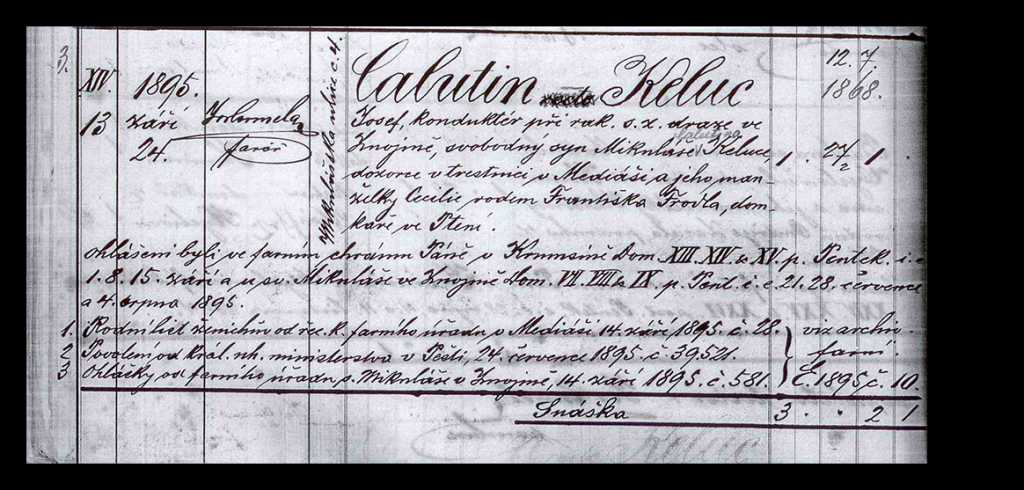 3.
XIV. 1895. 12. 7.
1868.
13 září
24. farář
Mikulášská ulice č. 4.
Calutin recte Keluc
Josef, konduktér při rak. s. z. draze ve
Znojmě, svobodný syn Mikuláše Keluce, 1 . 27/2 1 .
dozorce v trestnici v Mediáši a jeho man-
želky Cecilie rodem Františka Frodla, dom-
kaře ve Ptení.
Ohlášeni byli ve farním chrámu Páně v Krumsíně Dom. XIII. XIV. & XV. p. Pentek. i. e.
1. 8. 15. září a u sv. Mikuláše ve Znojmě Dom. VII. VIII & IX p. Pent. i. e. 21. 28. července
a 4. srpna 1895.
1. Rodní list ženichův od řec. k. farního úřadu v Mediáši 14. září 1895. č. 28. viz archiv
2 Povolení od král. uh. ministerstva v Pešti, 24. července 1895. č. 39.521. farní.
3 Ohlášky od farního úřadu s. Mikuláše v Znojmě, 14. září 1895. č. 581. E. 1895 č. 10.
Snáška 3 . . 2 1
Keluc